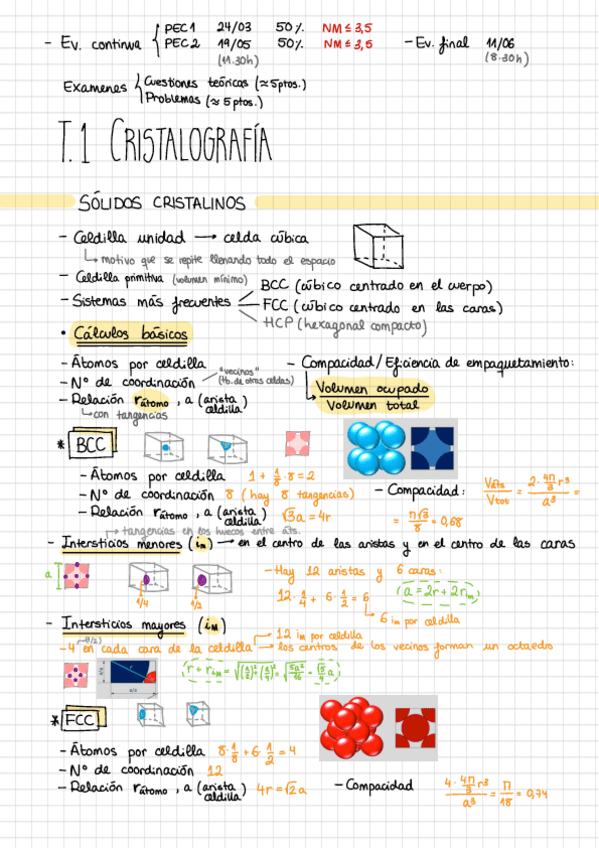 - Ev. continua { PEC1 24/03 50% NM ≤ 3,5
PEC2 19/05 50% NM ≤ 3,5
(11.30h)
- Ev. final 11/06
(8.30h)
Examenes { Cuestiones teóricas (≈5ptos.)
Problemas (≈5ptos.)
T.1 CRISTALOGRAFÍA
SÓLIDOS CRISTALINOS
- Celdilla unidad → celda cúbica
↳ motivo que se repite llenando todo el espacio
- Celdilla primitiva (volumen mínimo)
- Sistemas más frecuentes
BCC (cúbico centrado en el cuerpo)
FCC (cúbico centrado en las caras)
HCP (hexagonal compacto)
• Cálculos básicos
- Átomos por celdilla
- Nº de coordinación
"vecinos"
(tb. de otras celdas)
- Relación rátomo, a (arista celdilla)
↳ con tangencias
- Compacidad/Eficiencia de empaquetamiento:
Volumen ocupado
Volumen total
* BCC
- Átomos por celdilla 1 + 1/8 · 8 = 2
- Nº de coordinación 8 (hay 8 tangencias)
- Relación rátomo, a (arista celdilla) √3a = 4r
- Compacidad: Váts/Vtot = 2 · 4π/3 r³ / a³ =
= π√3/8 = 0,68
tangencias en los huecos entre áts.
- Intersticios menores (im) → en el centro de las aristas y en el centro de las caras
a
1/4
1/2
- Hay 12 aristas y 6 caras:
12 · 1/4 + 6 · 1/2 = 6
(a = 2r + 2rim)
↳ 6 im por celdilla
- Intersticios mayores (iM)
- 4 en cada cara de la celdilla
(1/2)
→ 12 iM por celdilla
→ los centros de los vecinos forman un octaedro
a/4
a/2
r + riM = √((a/2)² + (a/4)²) = √(5a²/16) = √5/4 a
* FCC
- Átomos por celdilla 8 · 1/8 + 6 · 1/2 = 4
- Nº de coordinación 12
- Relación rátomo, a (arista celdilla) 4r = √2a
- Compacidad 4 · 4π/3 r³ / a³ = π/18 = 0,74